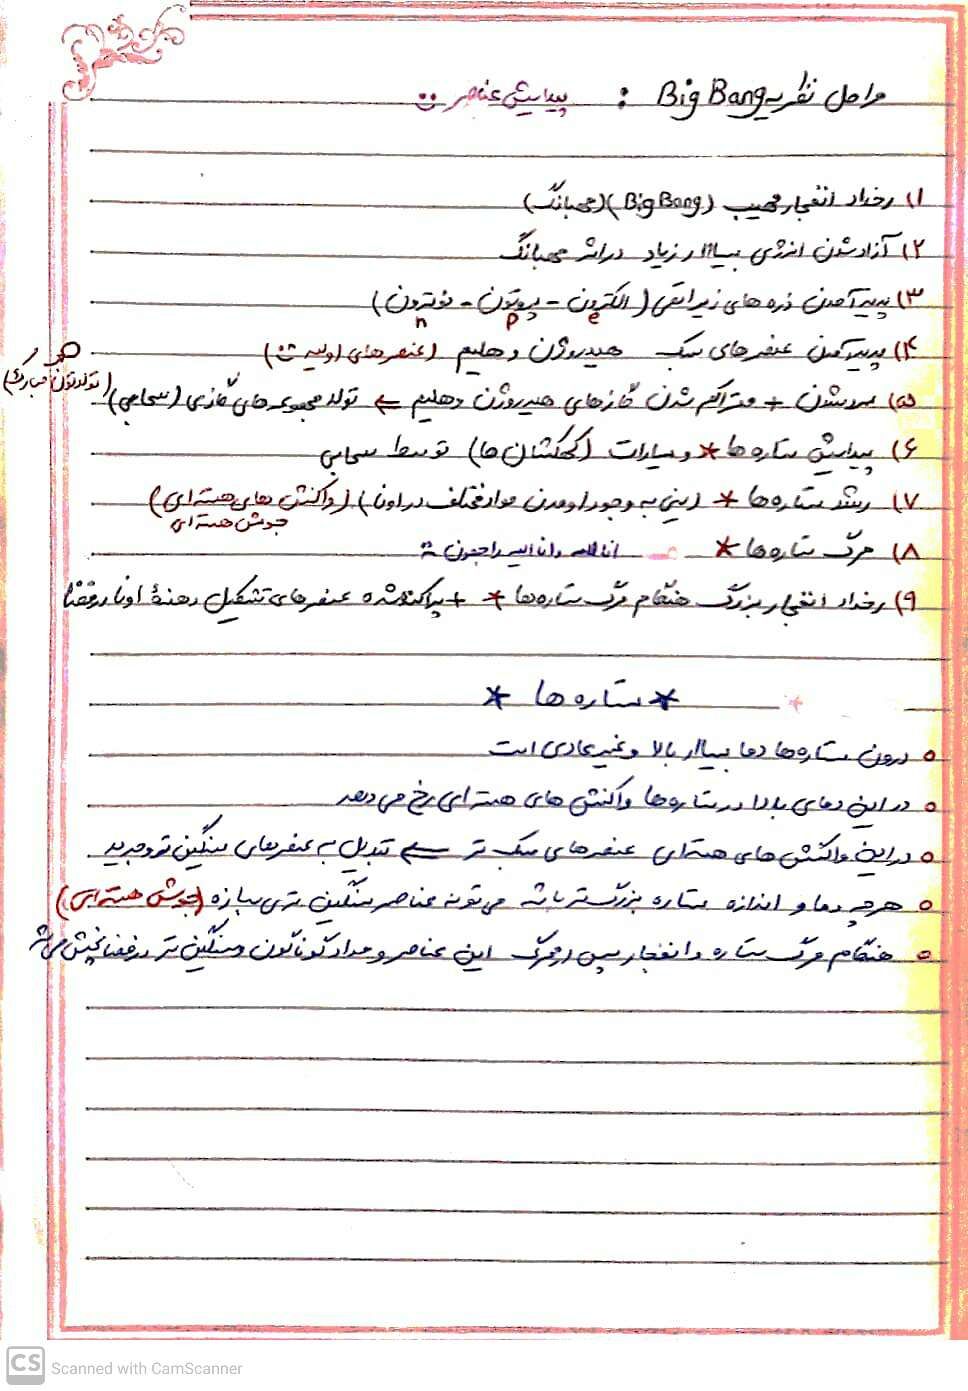 مراحل نظریه Big Bang : پیدایش عناصر
۱) رخداد انفجار مهیب (Big Bang) (مهبانگ)
۲) آزاد شدن انرژی بسیااار زیاد در اثر مهبانگ
۳) پدید آمدن ذره های زیراتمی (الکترون - پروتون - نوترون)
e p n
۴) پدید آمدن عنصرهای سبک هیدروژن و هلیم (عنصرهای اولیه)
۵) سرد شدن + متراکم شدن گازهای هیدروژن و هلیم ← تولد مجموعه های گازی (سحابی) (تولدتون مبارک)
۶) پیدایش ستاره ها * و سیارات (کهکشان ها) توسط سحابی
۷) رشد ستاره ها * (ینی به وجود اومدن مواد مختلف در اونا) (واکنش های هسته ای)
جوش هسته ای
۸) مرگ ستاره ها * انا لله و انا الیه راجعون
۹) رخداد انفجار بزرگ هنگام مرگ ستاره ها * + پراکنده شده عنصرهای تشکیل دهندهٔ اونا در فضا
* ستاره ها *
○ درون ستاره ها دما بسیاار بالا و غیر عادی است
○ در این دمای بالا در ستاره ها واکنش های هسته ای رخ می دهد
○ در این واکنش های هسته ای عنصرهای سبک تر ← تبدیل به عنصرهای سنگین تر و جدید
○ هر چه دما و اندازه ستاره بزرگ تر باشه می تونه عناصر سنگین تری بسازه (جوش هسته ای)
○ هنگام مرگ ستاره و انفجار پس از مرگ این عناصر و مواد گوناگون و سنگین تر در فضا پخش می شه
CS Scanned with CamScanner